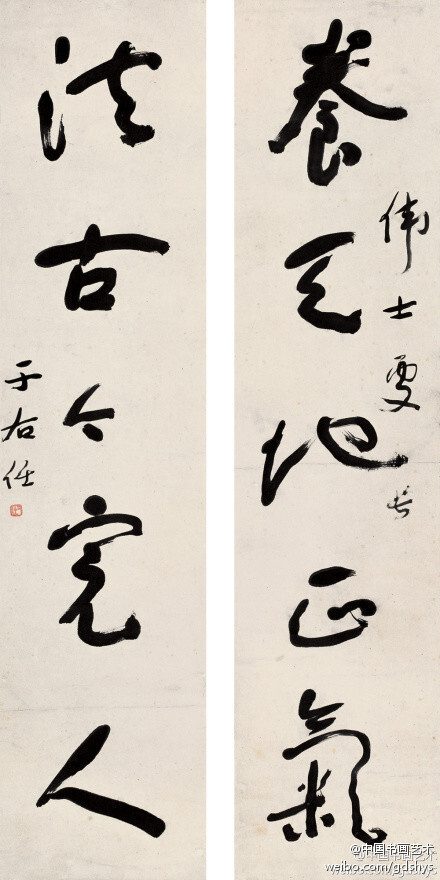 養天地正氣
偉士
法古今完人
于右任
@中国书画艺术
weibo.com/gdshys